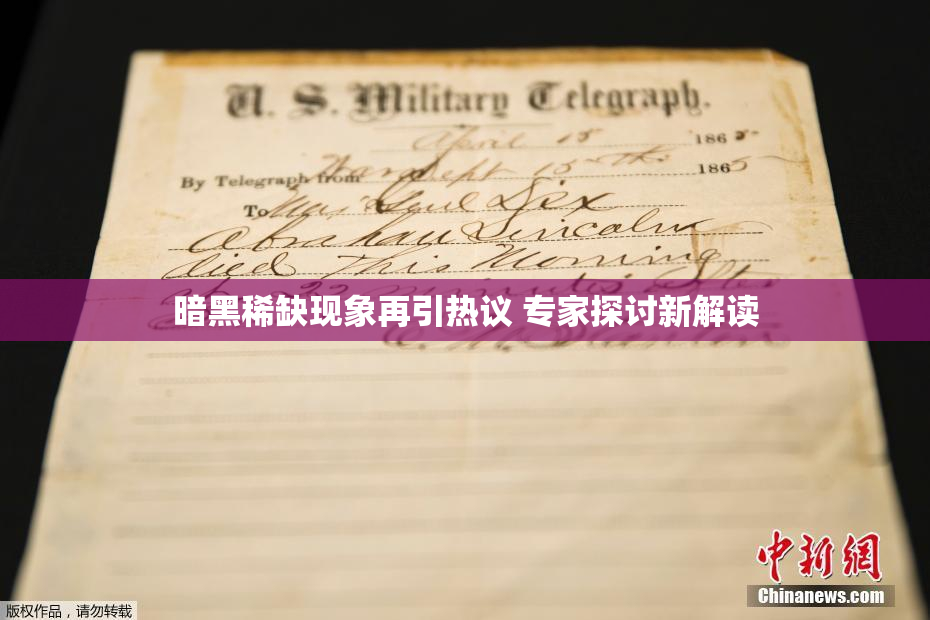 U. S. Military Telegraph.
April 15 1865
By Telegraph from War Dept 15th 1865
To Maj Genl Dix
Abraham Lincoln
died This Morning
at 22 minutes after
暗黑稀缺现象再引热议 专家探讨新解读
中新网
Chinanews.com
版权作品,请勿转载